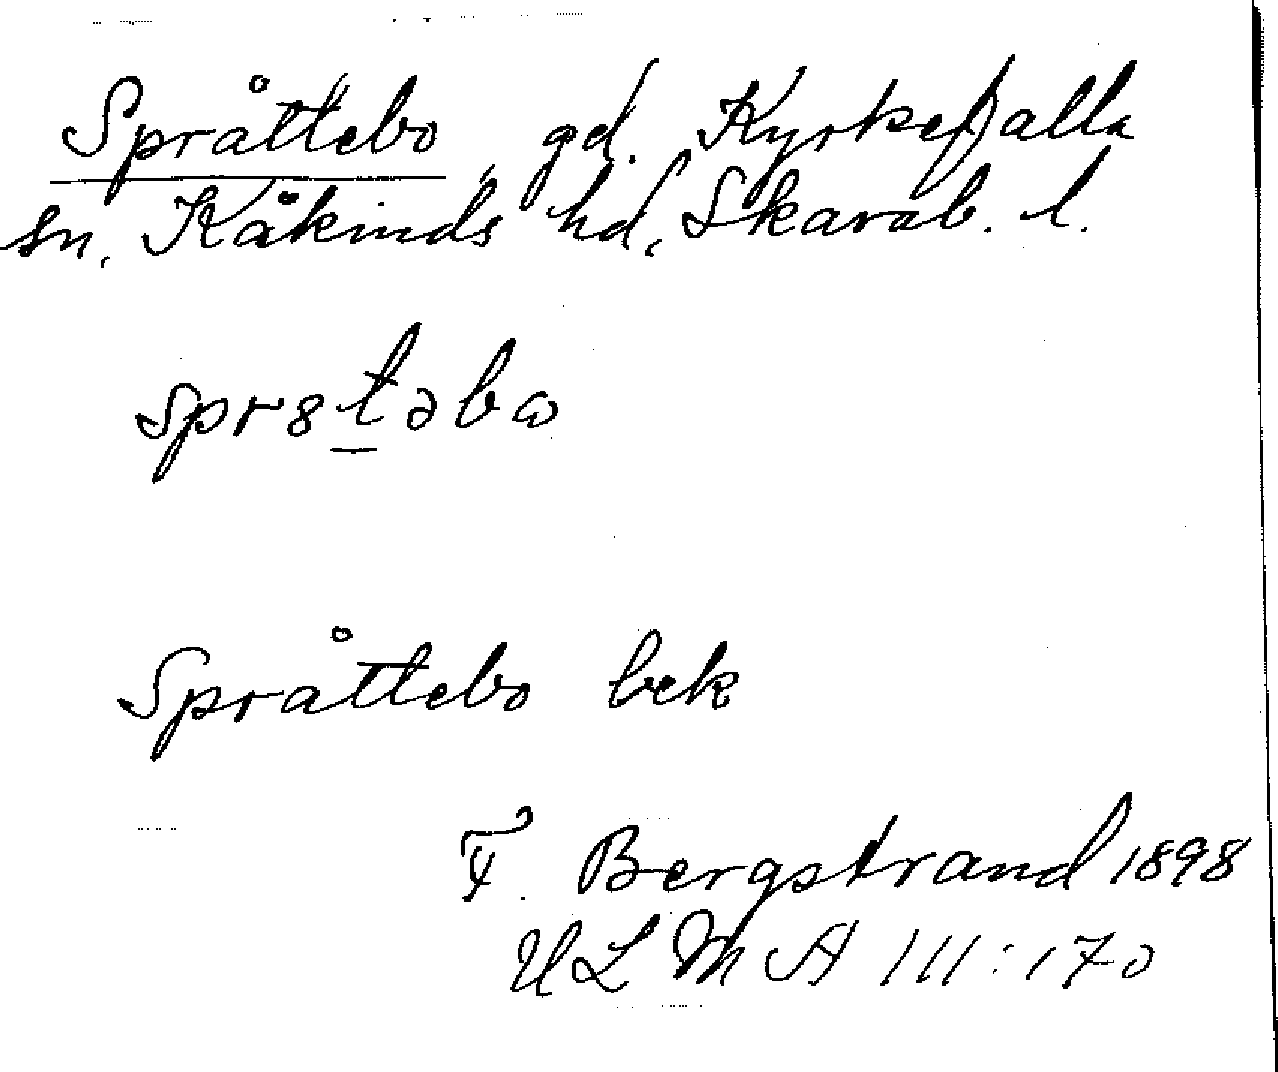 Språttebo, gd. Kyrkefalla
sn, Kåkinds hd, Skarab. l.
spr8təbɷ
Språttebo bek
F. Bergstrand 1898
ULMA 111:170